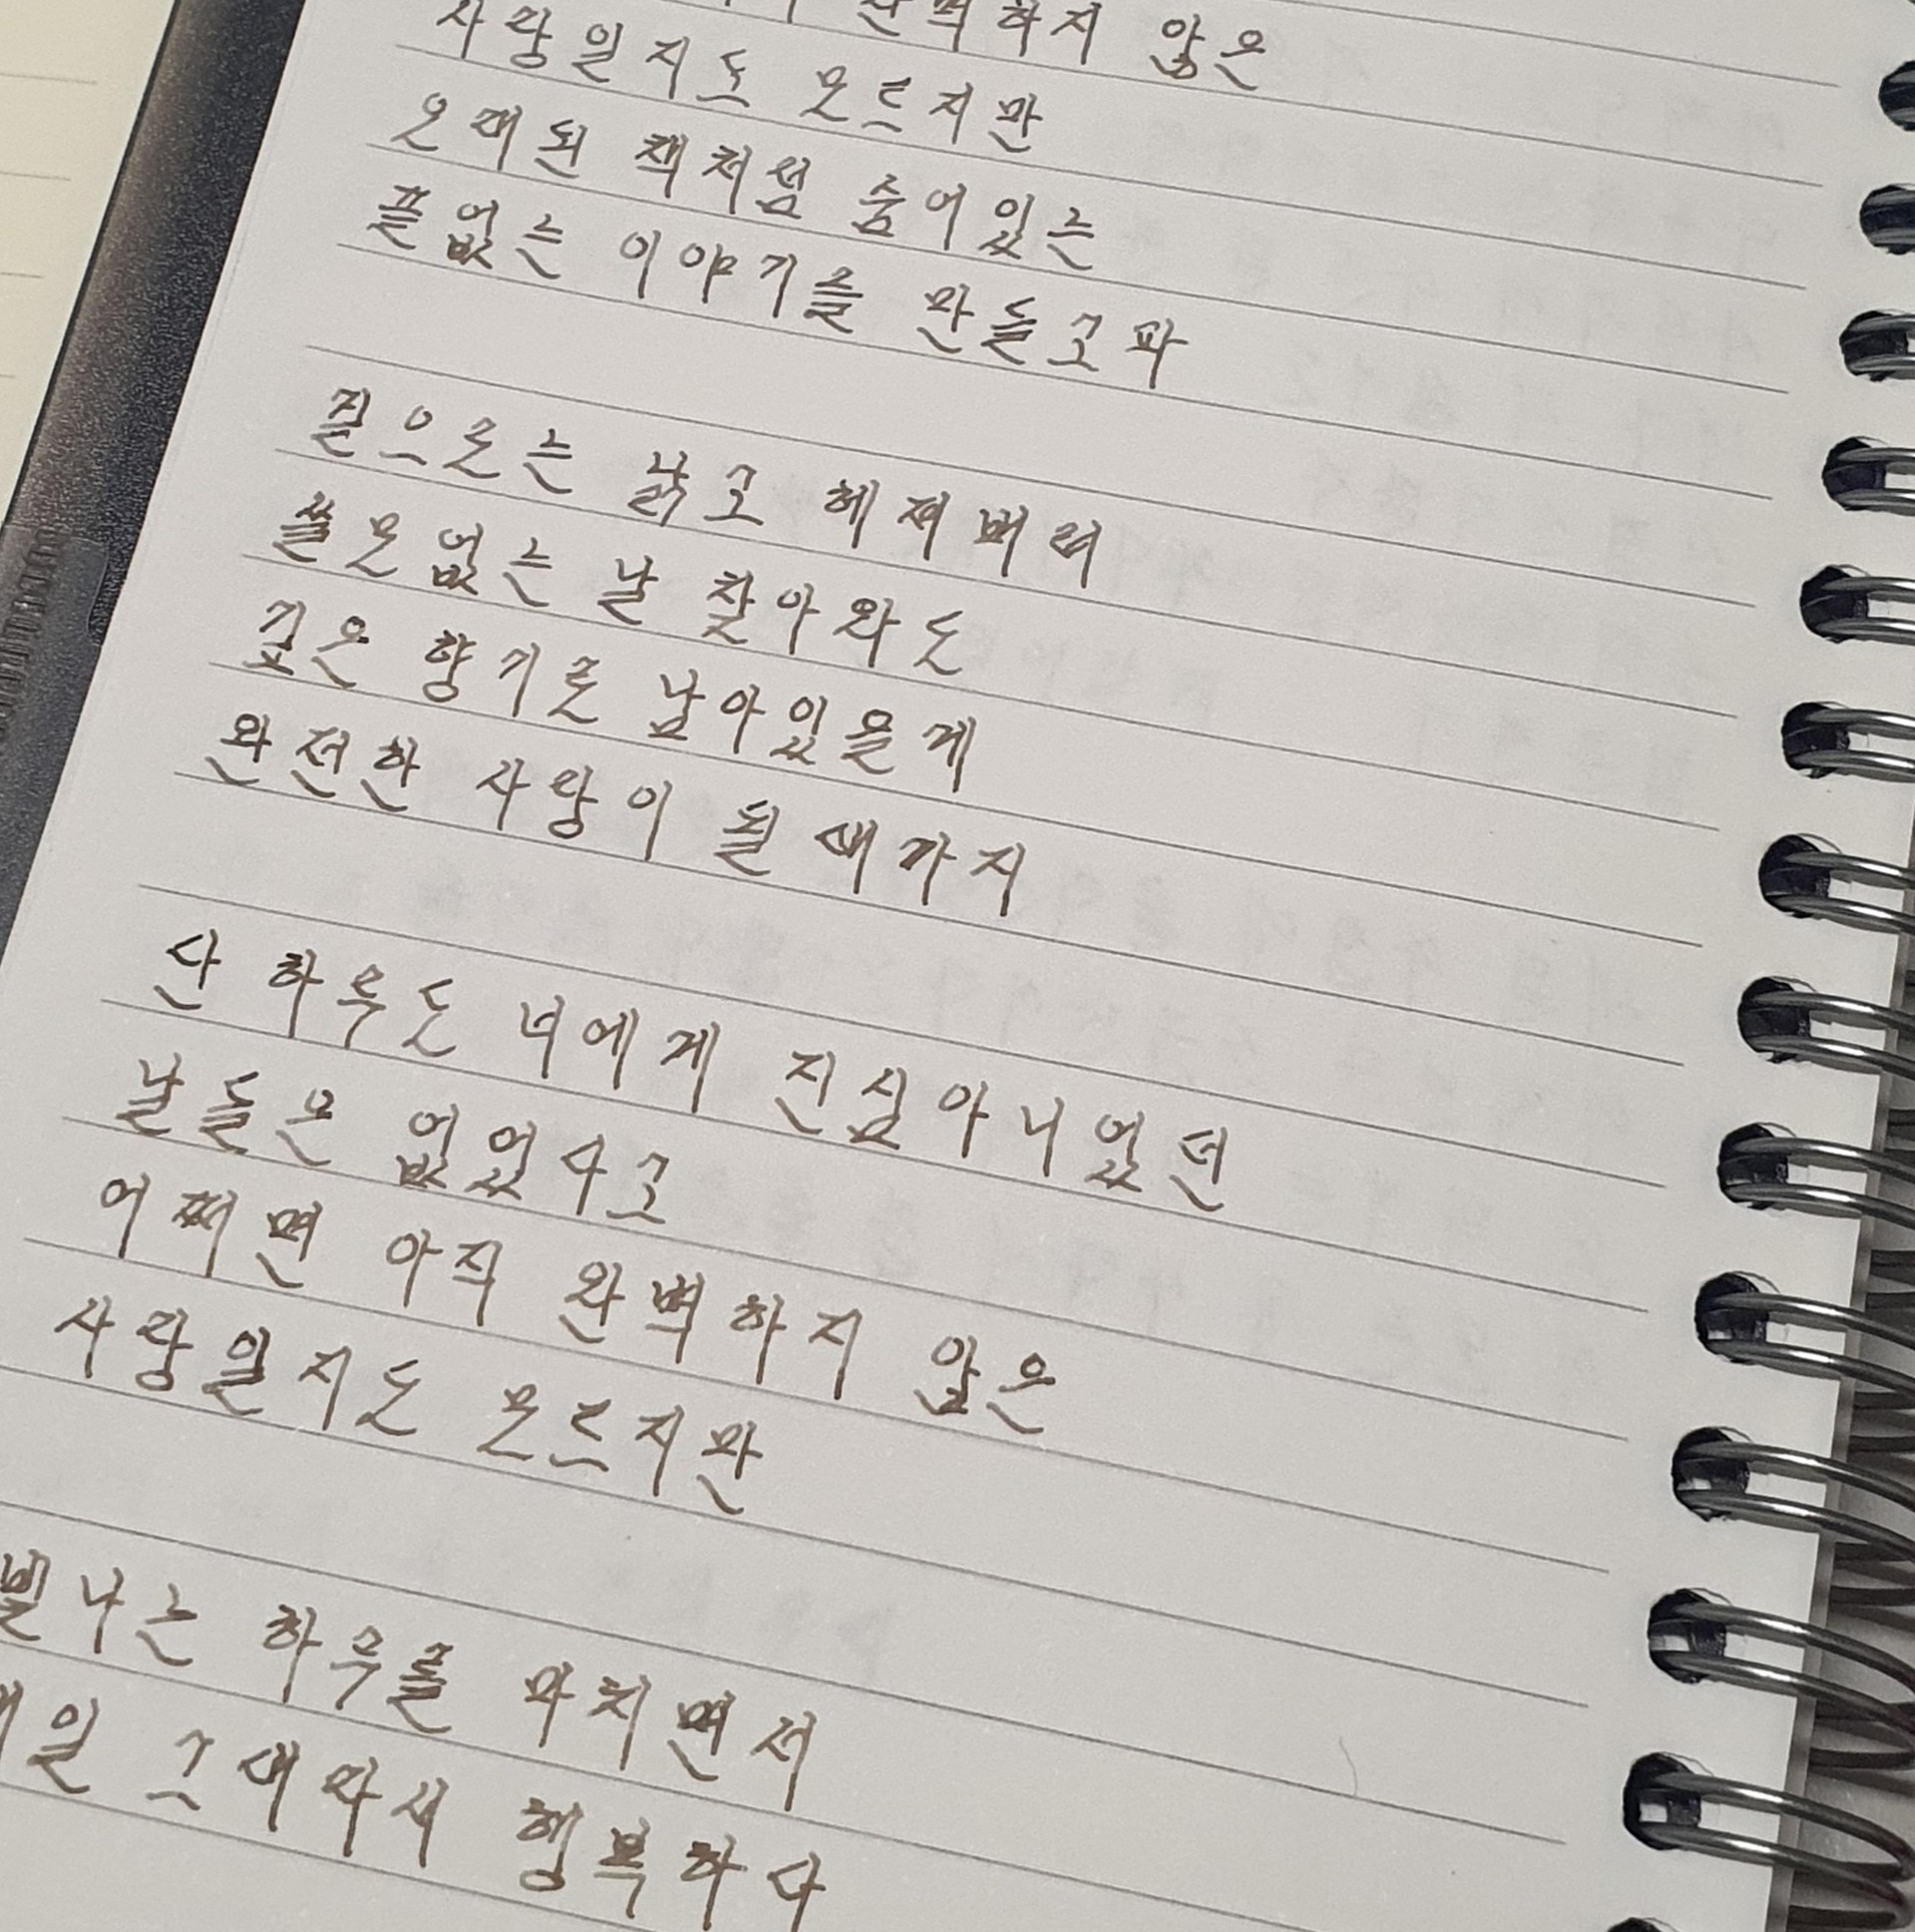 완벽하지 않은
사랑일지도 모르지만
오래된 책처럼 숨어있는
끝없는 이야기를 만들고파
겉으로는 낡고 헤져버려
쓸모없는 날 찾아와도
깊은 향기로 남아있을게
완전한 사랑이 될 때까지
단 하루도 너에게 진심아니었던
날들은 없었다고
어쩌면 아직 완벽하지 않은
사랑일지도 모르지만
빛나는 하루를 마치면서
매일 그대라서 행복하다